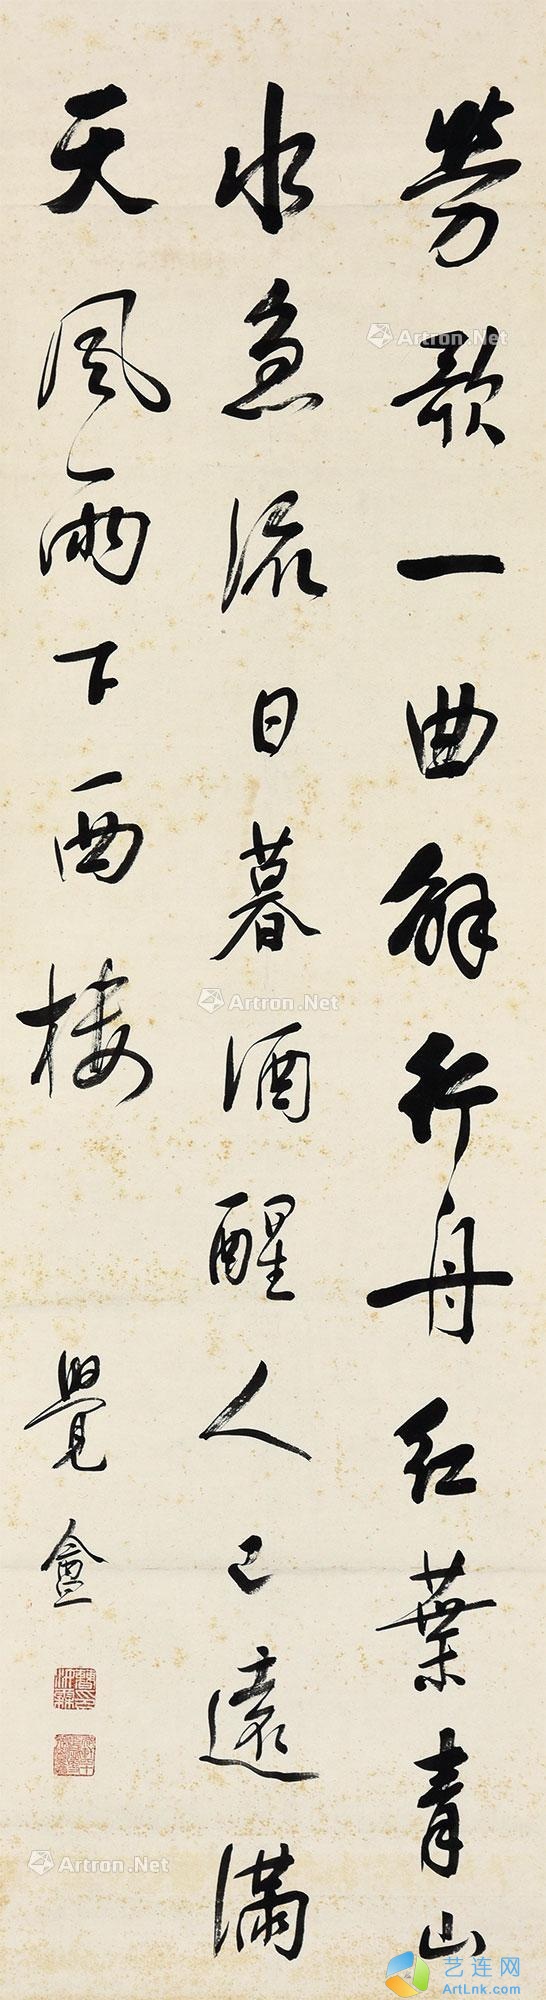 勞歌一曲解行舟紅葉青山
水急流日暮酒醒人已遠滿
天風雨下西樓
覺盦
Artron.Net
Artron.Net
Artron.Net
艺连网
ArtLnk.com